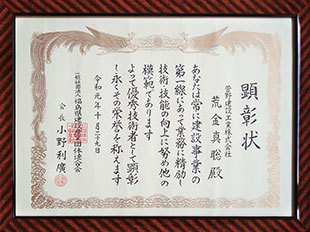 顕彰状
菅野建設工業株式会社
荒金真聡殿
あなたは常に建設事業の
第一線にあって業務に精励し
技術・技能の向上に努め他の
模範であります
よって優秀技術者として顕彰
し永くその栄誉を称えます
令和元年十月二十九日
一般社団法人福島県建設産業団体連合会
会長 小野利廣